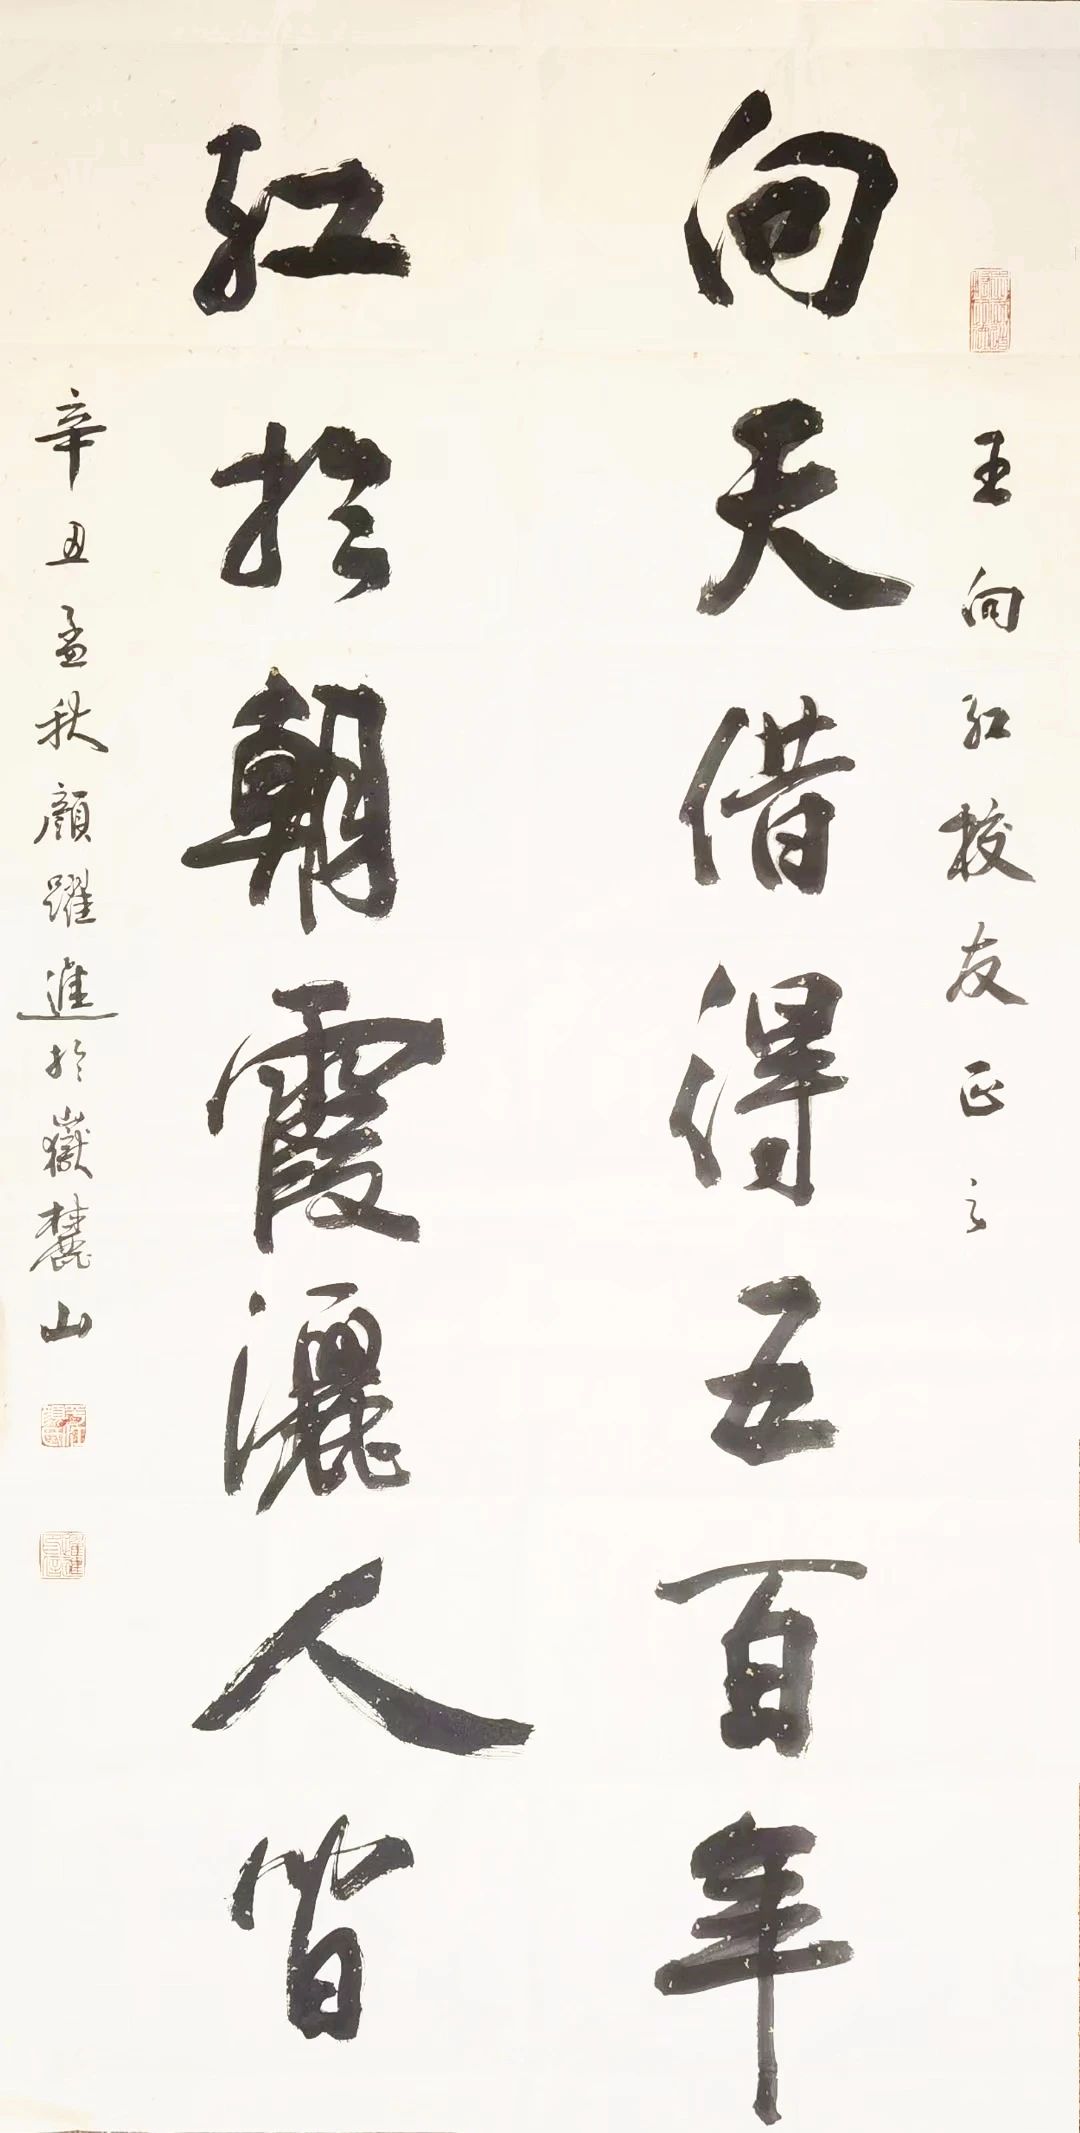 王向红校友正之
向天借得五百年
红於朝霞灑人間
辛丑孟秋顏躍進於嶽麓山